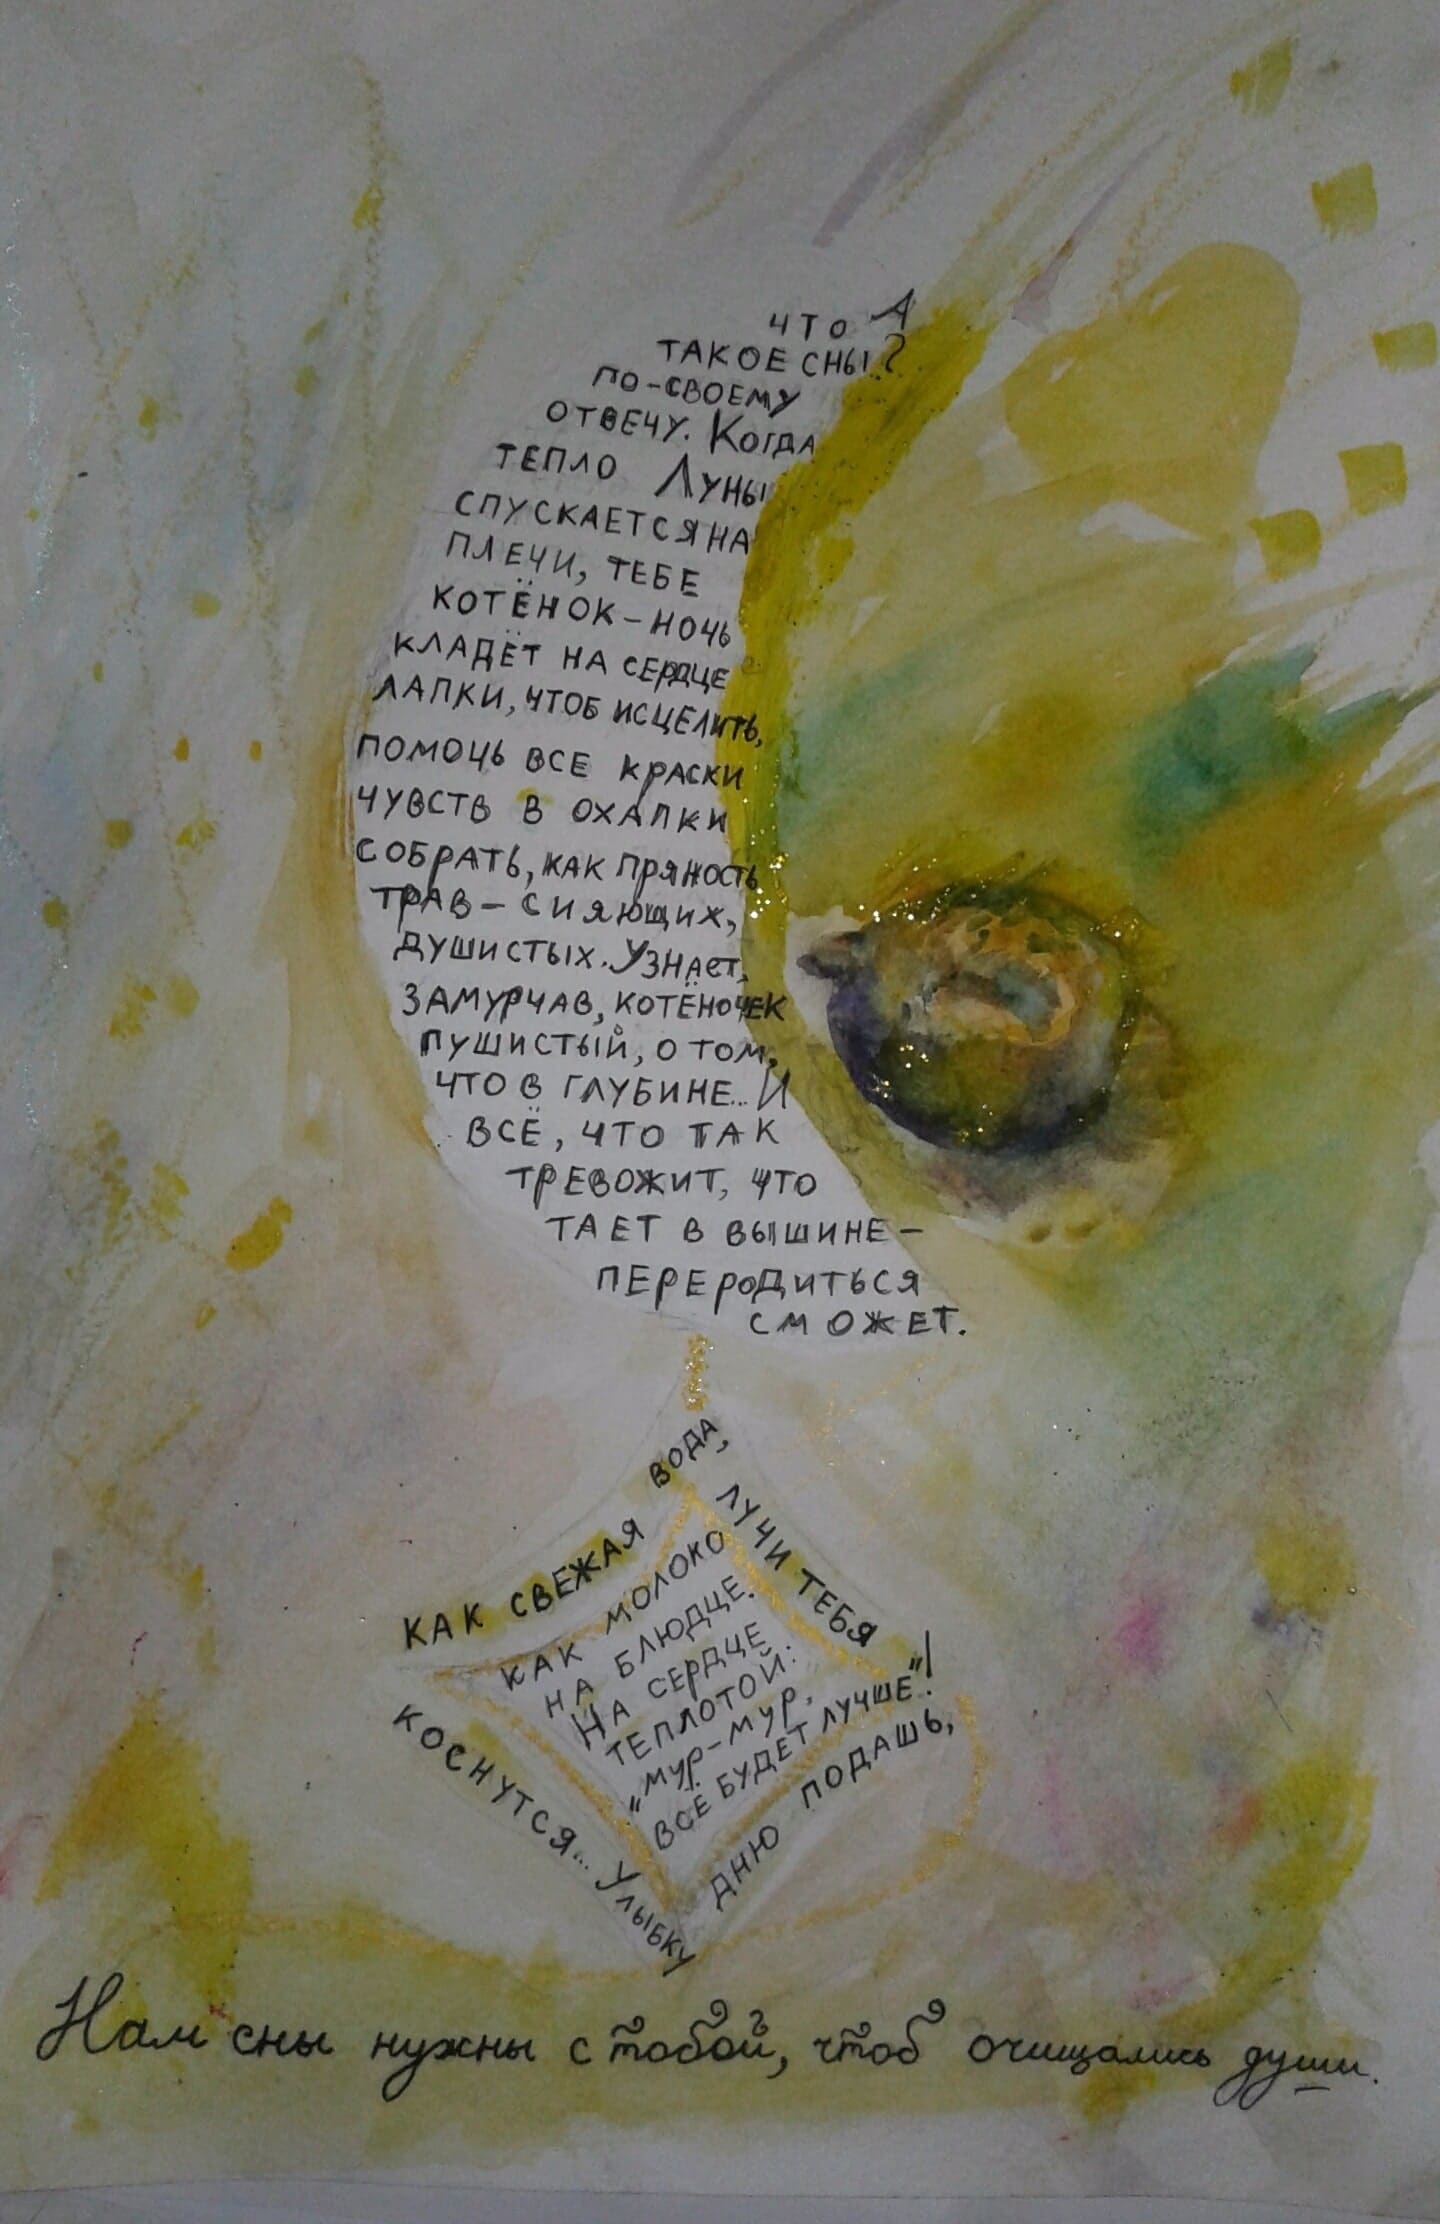 А
что
такое сны?
по-своему
отвечу. Когда
тепло Луны
спускается на
плечи, тебе
котёнок-ночь
кладёт на сердце
лапки, чтоб исцелить,
помочь все краски
чувств в охапки
собрать, как пряность
трав - сияющих,
душистых. Узнает,
замурчав, котёночек
пушистый, о том,
что в глубине... И
всё, что так
тревожит, что
тает в вышине -
переродиться
сможет.
Как свежая вода,
лучи тебя
коснутся... Улыбку
дню подашь,
как молоко
на блюдце.
На сердце
теплотой:
"мур-мур,
всё будет лучше"!
Нам сны нужны с тобой, чтоб очищались души.